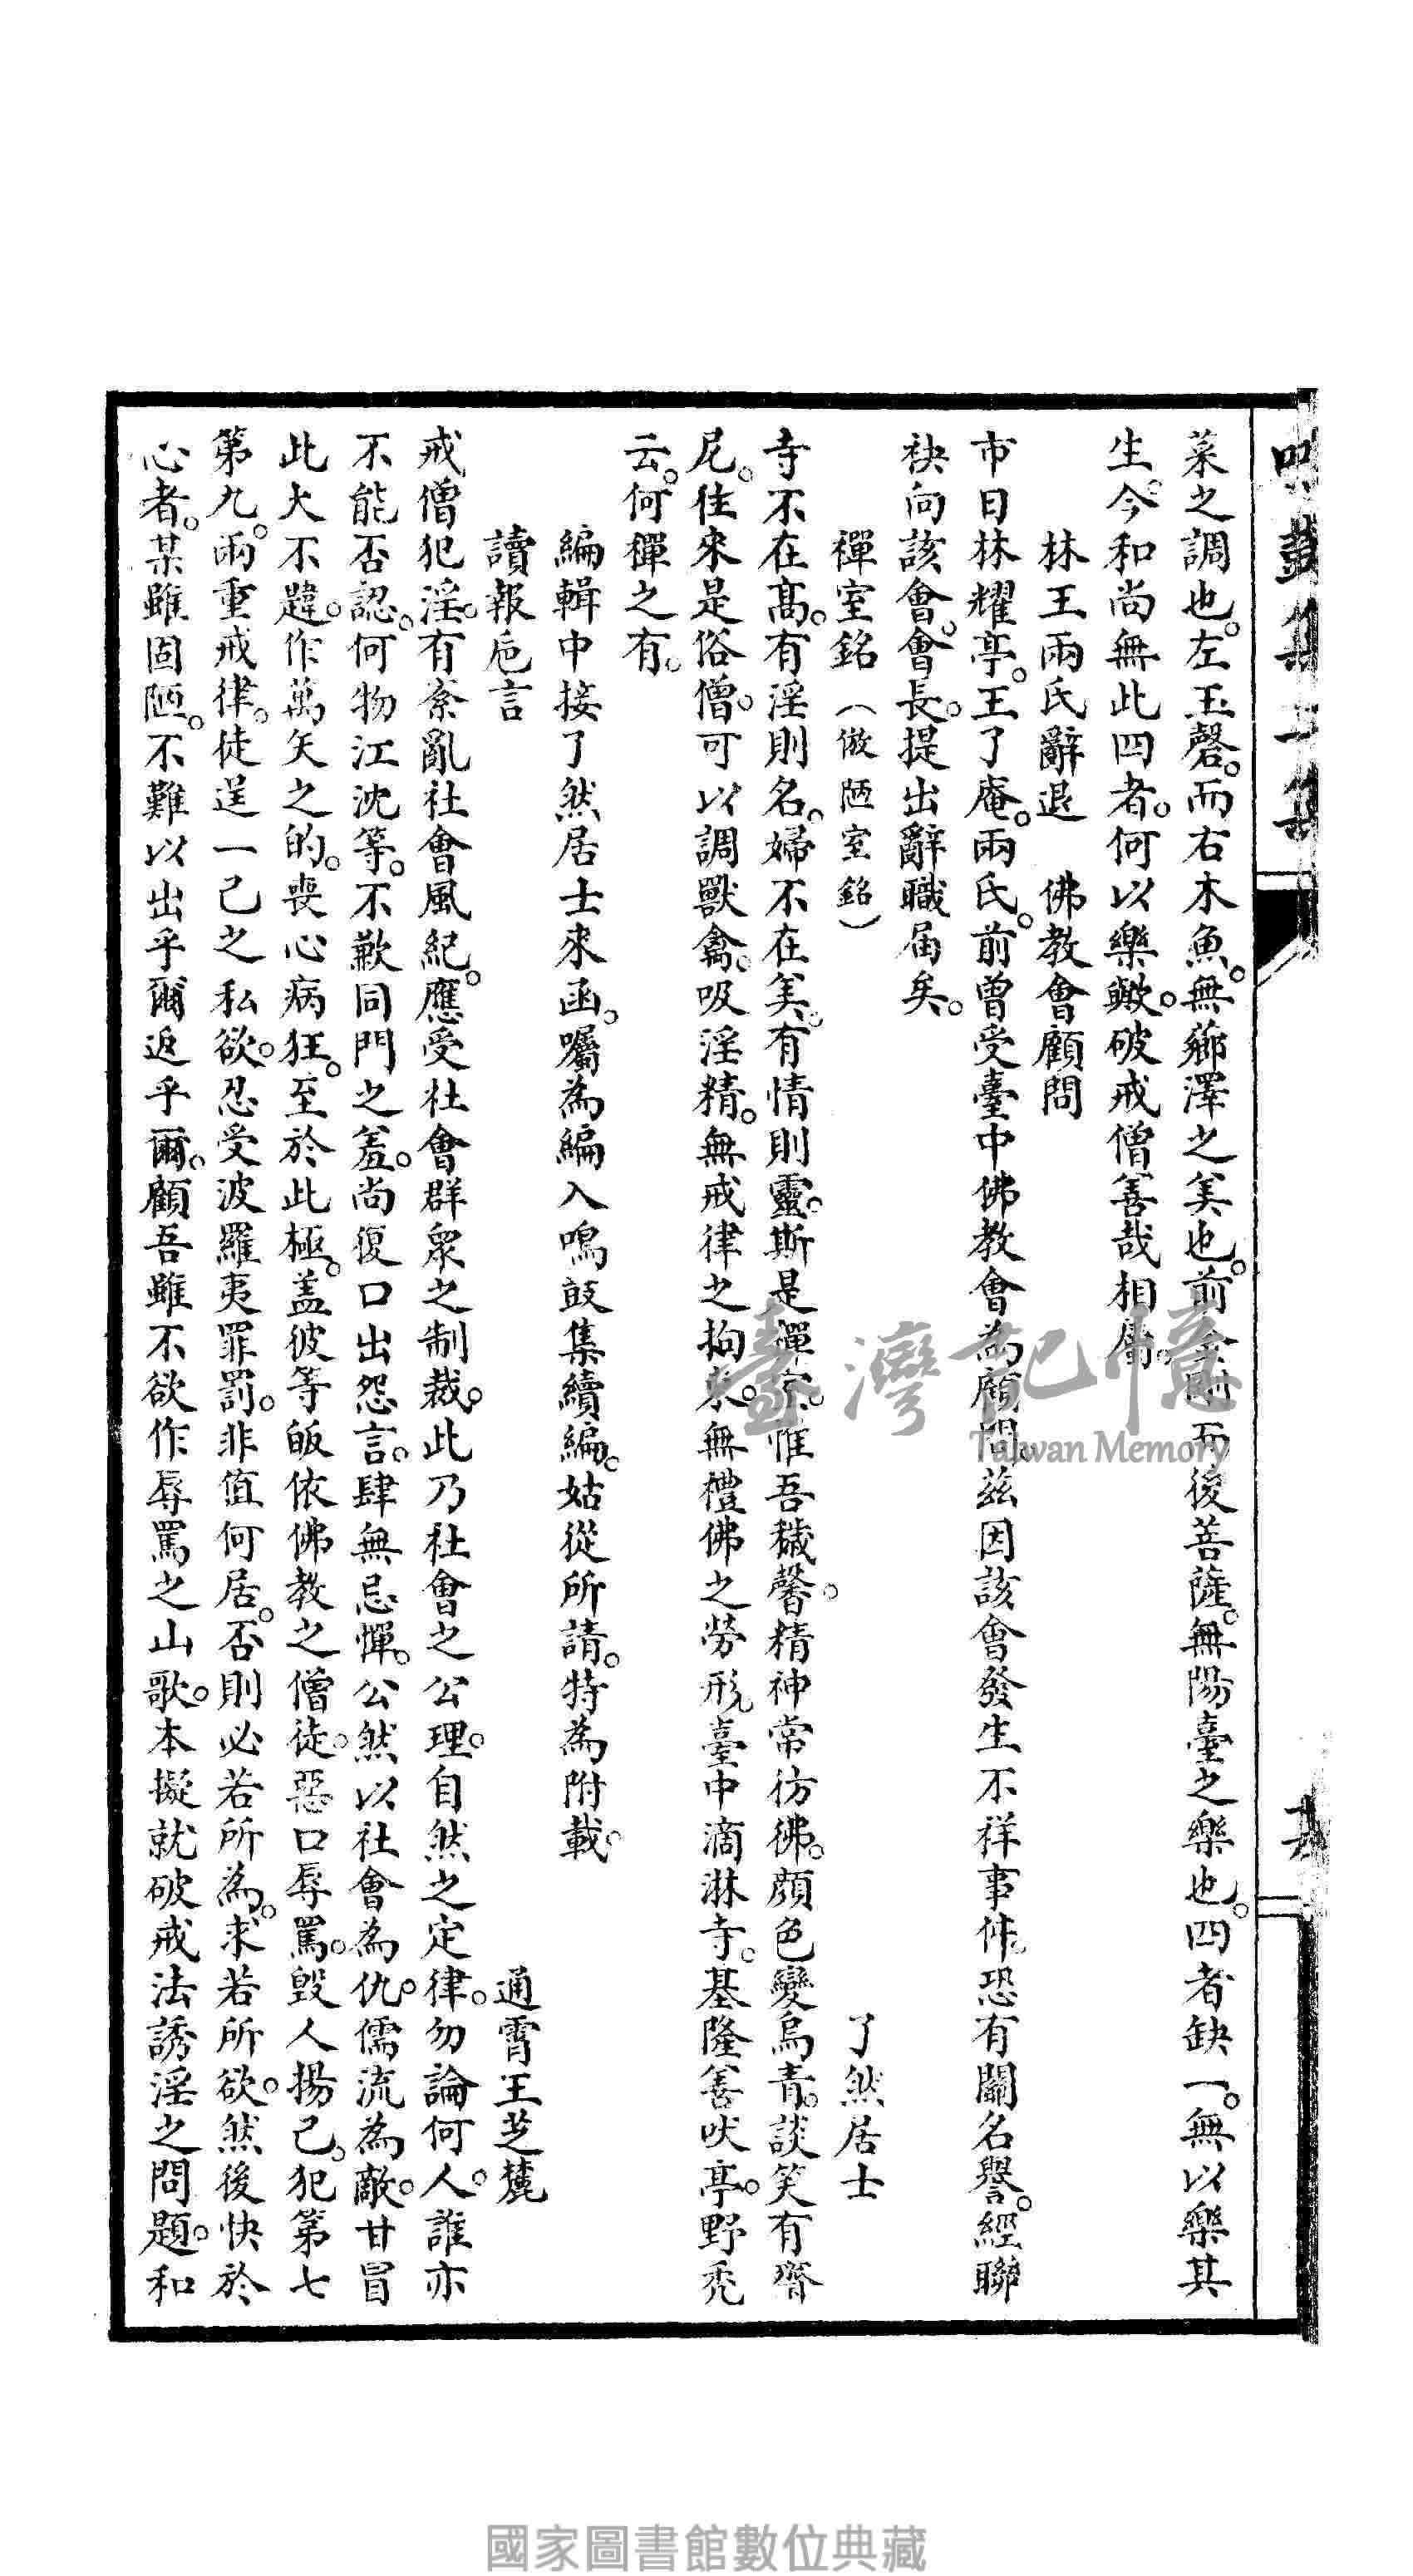 鳴鼓集二集
菜之調也。左玉磬。而右木魚。無薌澤之美也。前金剛而後菩薩。無陽臺之樂也。四者缺一。無以樂其
生。今和尚無此四者。何以樂歟。破戒僧善哉相屬。
林王兩氏辭退　佛教會顧問
市日林耀亭。王了庵。兩氏。前曾受臺中佛教會為顧問。茲因該會發生不祥事件。恐有關名譽。經聯
袂向該會。會長。提出辭職届矣。
禪室銘（倣陋室銘）　了然居士
寺不在高。有淫則名。婦不在美。有情則靈。斯是禪室。惟吾穢馨。精神常彷彿。顏色變烏青。談笑有齋
尼。往來是俗僧。可以調獸禽。吸淫精。無戒律之拘束。無禮佛之勞形。臺中滴淋寺。基隆善吠亭。野禿
云。何禪之有。
編輯中接了然居士來函。囑為編入鳴鼓集續編。姑從所請。特為附載。
讀報巵言　通霄王芝麓
戒僧犯淫。有紊亂社會風紀。應受社會群衆之制裁。此乃社會之公理。自然之定律。勿論何人。誰亦
不能否認。何物江沈等。不歉同門之羞。尚復口出怨言。肆無忌憚。公然以社會為仇。儒流為敵。甘冒
此大不韙。作萬矢之的。喪心病狂。至於此極。盖彼等皈依佛教之僧徒。惡口辱罵。毀人揚己。犯第七
第九。兩重戒律。徒逞一己之私欲。忍受波羅夷罪罰。非值何居。否則必若所為。求若所欲。然後快於
心者。某雖固陋。不難以出乎爾返乎爾。顧吾雖不欲作辱罵之山歌。本擬就破戒法誘淫之問題。和
臺灣記憶
Taiwan Memory
國家圖書館數位典藏